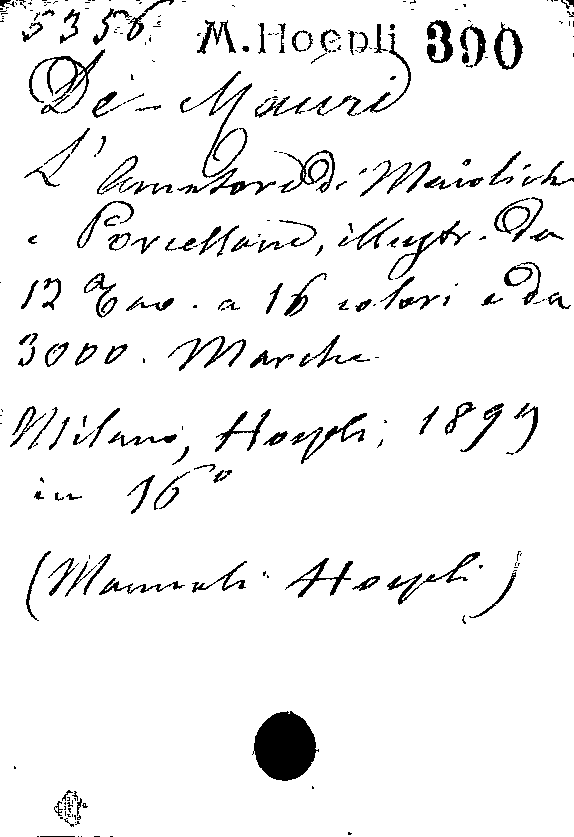 5356 M. Hoepli 390
De-Mauri
L'Amatore di Maioliche
e Porcellane, illustr. da
12 Tav. a 16 colori e da
3000. Marche
Milano, Hoepli, 1899
in 16°
(Manuali Hoepli)